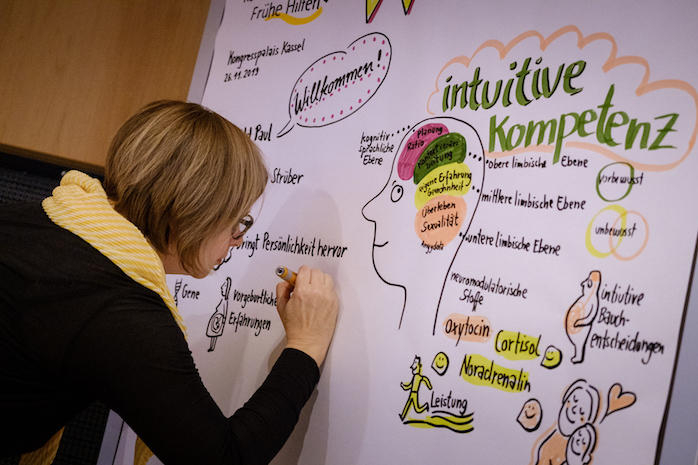 Frühe Hilfen
Kongresspalais Kassel
26.11.2019
Willkommen!
Paul
Strüber
Persönlichkeit hervor
Gene
vorgeburtliche
Erfahrungen
intuitive
Kompetenz
kognitiv
sprachliche
Ebene
Planung
Ratio
eigene Erfahrung
Gewohnheit
Überleben
Sexualität
Amygdala
obere limbische Ebene
mittlere limbische Ebene
untere limbische Ebene
vorbewusst
unbewusst
neuromodulatorische
Stoffe
Oxytocin
Cortisol
Noradrenalin
Leistung
intuitive
Bauch-
entscheidungen